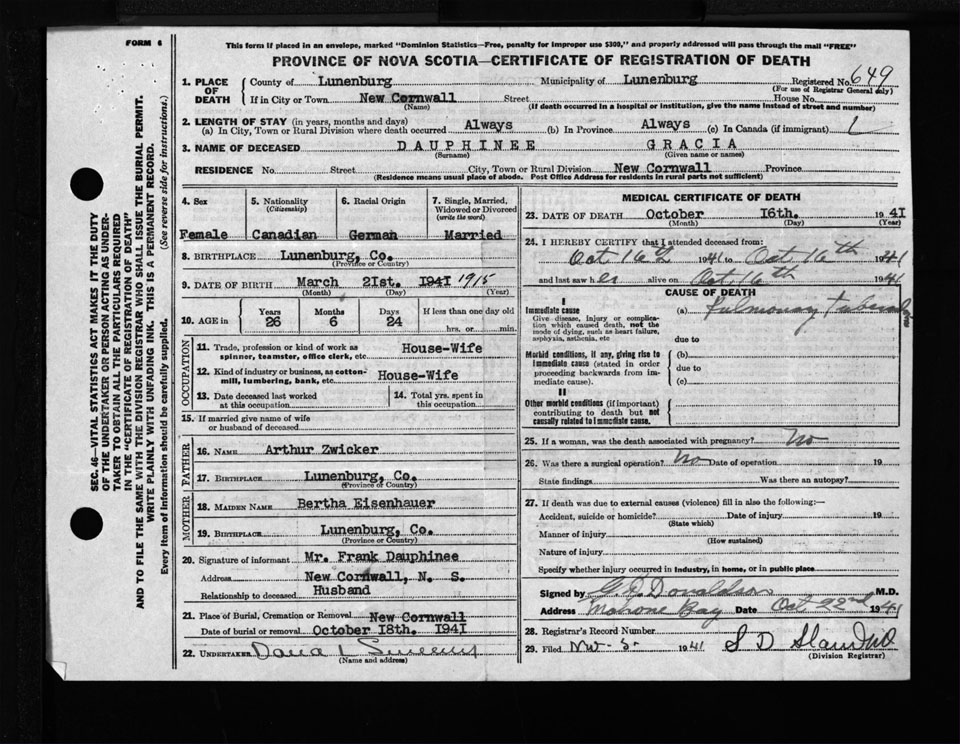 FORM 6
This form if placed in an envelope, marked "Dominion Statistics—Free, penalty for improper use $300," and properly addressed will pass through the mail "FREE"
PROVINCE OF NOVA SCOTIA—CERTIFICATE OF REGISTRATION OF DEATH
SEC. 46—VITAL STATISTICS ACT MAKES IT THE DUTY
OF THE UNDERTAKER OR PERSON ACTING AS UNDER-
TAKER TO OBTAIN ALL THE PARTICULARS REQUIRED
IN THE "CERTIFICATE OF REGISTRATION OF DEATH"
AND TO FILE THE SAME WITH THE DIVISION REGISTRAR WHO SHALL ISSUE THE BURIAL PERMIT.
WRITE PLAINLY WITH UNFADING INK. THIS IS A PERMANENT RECORD.
Every item of information should be carefully supplied. (See reverse side for instructions.)
1. PLACE OF DEATH
County of Lunenburg Municipality of Lunenburg Registered No. 649
(For use of Registrar General only)
If in City or Town New Cornwall Street House No.
(Name) (If death occurred in a hospital or institution, give the name instead of street and number)
2. LENGTH OF STAY (in years, months and days)
(a) In City, Town or Rural Division where death occurred Always (b) In Province Always (c) In Canada (if immigrant)
3. NAME OF DECEASED DAUPHINEE GRACIA
(Surname) (Given name or names)
RESIDENCE No. Street City, Town or Rural Division New Cornwall Province
(Residence means usual place of abode. Post Office Address for residents in rural parts not sufficient)
4. Sex 5. Nationality (Citizenship) 6. Racial Origin 7. Single, Married, Widowed or Divorced (write the word)
Female Canadian German Married
8. BIRTHPLACE Lunenburg, Co.
(Province or Country)
9. DATE OF BIRTH March 21st. 1941 1915
(Month) (Day) (Year)
10. AGE in Years Months Days If less than one day old
26 6 24 hrs. or min.
OCCUPATION
11. Trade, profession or kind of work as spinner, teamster, office clerk, etc House-Wife
12. Kind of industry or business, as cotton-mill, lumbering, bank, etc. House-Wife
13. Date deceased last worked at this occupation 14. Total yrs. spent in this occupation
15. If married give name of wife or husband of deceased
FATHER
16. NAME Arthur Zwicker
17. BIRTHPLACE Lunenburg, Co.
(Province or Country)
MOTHER
18. MAIDEN NAME Bertha Eisenhauer
19. BIRTHPLACE Lunenburg, Co.
(Province or Country)
20. Signature of informant Mr. Frank Dauphinee
Address New Cornwall, N. S.
Relationship to deceased Husband
21. Place of Burial, Cremation or Removal New Cornwall
Date of burial or removal October 18th. 1941
22. UNDERTAKER
(Name and address)
MEDICAL CERTIFICATE OF DEATH
23. DATE OF DEATH October 16th. 1941
(Month) (Day) (Year)
24. I HEREBY CERTIFY that I attended deceased from:
Oct 16 1941 to Oct 16th 1941
and last saw her alive on Oct 16th 1941
CAUSE OF DEATH
I
Immediate cause
Give disease, injury or complication which caused death, not the mode of dying, such as heart failure, asphyxia, asthenia, etc
(a) Pulmonary
due to
Morbid conditions, if any, giving rise to immediate cause (stated in order proceeding backwards from immediate cause).
(b)
due to
(c)
II
Other morbid conditions (if important) contributing to death but not causally related to immediate cause.
25. If a woman, was the death associated with pregnancy? No
26. Was there a surgical operation? No Date of operation 19
State findings Was there an autopsy?
27. If death was due to external causes (violence) fill in also the following:—
Accident, suicide or homicide? Date of injury 19
(State which)
Manner of injury
(How sustained)
Nature of injury
Specify whether injury occurred in industry, in home, or in public place
Signed by G. D. Donaldson M.D.
Address Mahone Bay Date Oct 22nd 1941
28. Registrar's Record Number
29. Filed Nov - 5 - 1941
(Division Registrar)